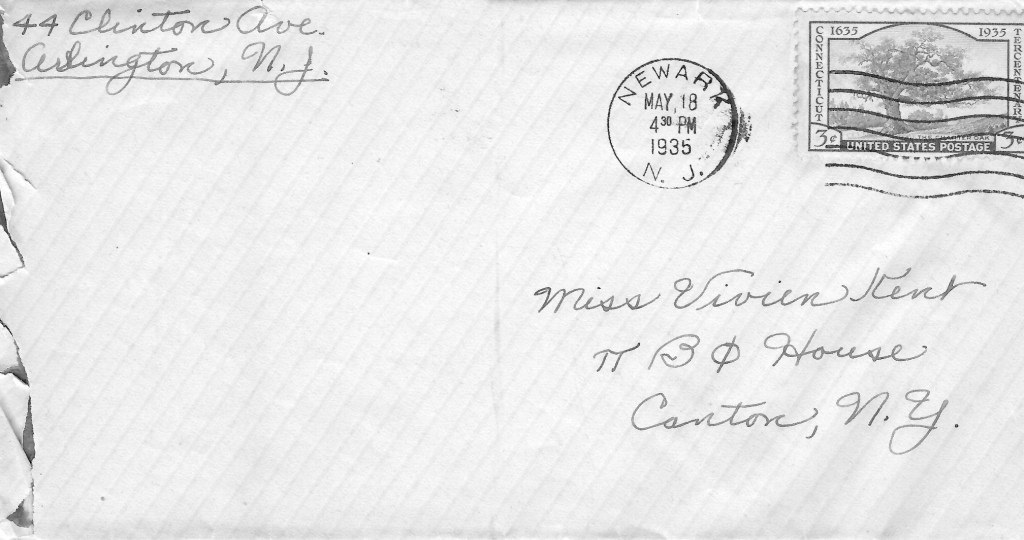 44 Clinton Ave.
Arlington, N. J.
NEWARK
MAY, 18
4³⁰ PM
1935
N. J.
1635 1935
CONNECTICUT
TERCENTENARY
THE CHARTER OAK
3¢ 3¢
UNITED STATES POSTAGE
Miss Vivien Kent
π B Φ House
Canton, N. Y.